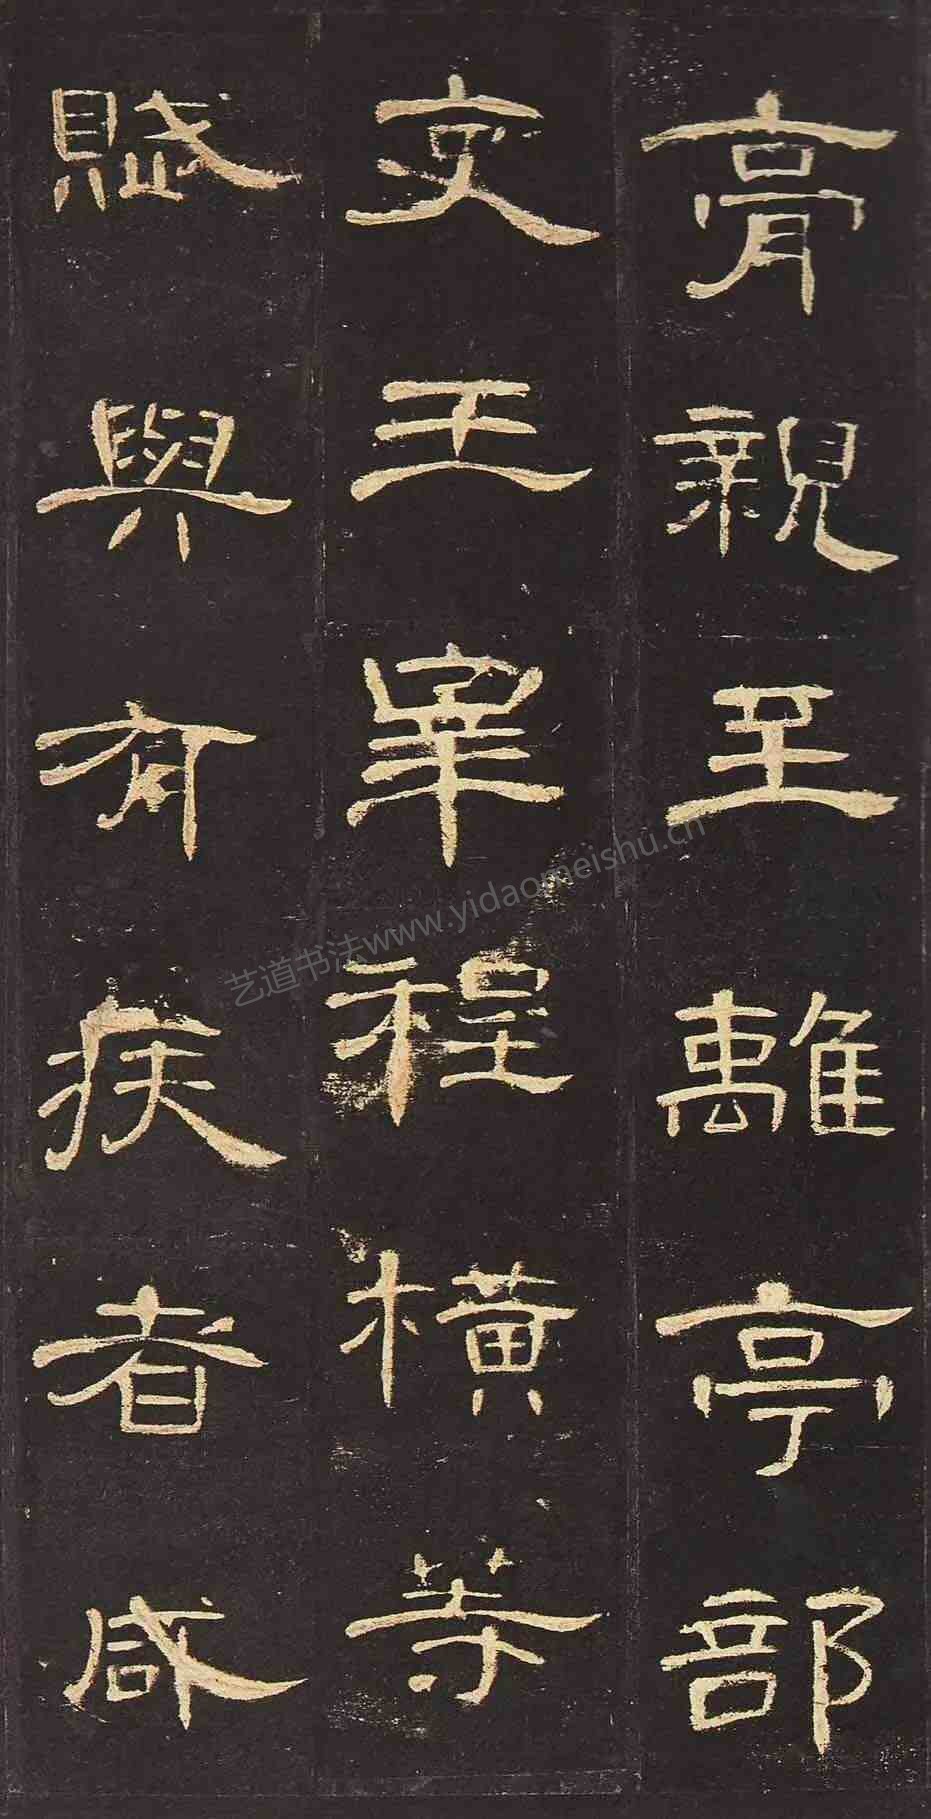 膏親至離亭部
史王睾程橫等
賦與有疾者咸
艺道书法www.yidaomeishu.cn